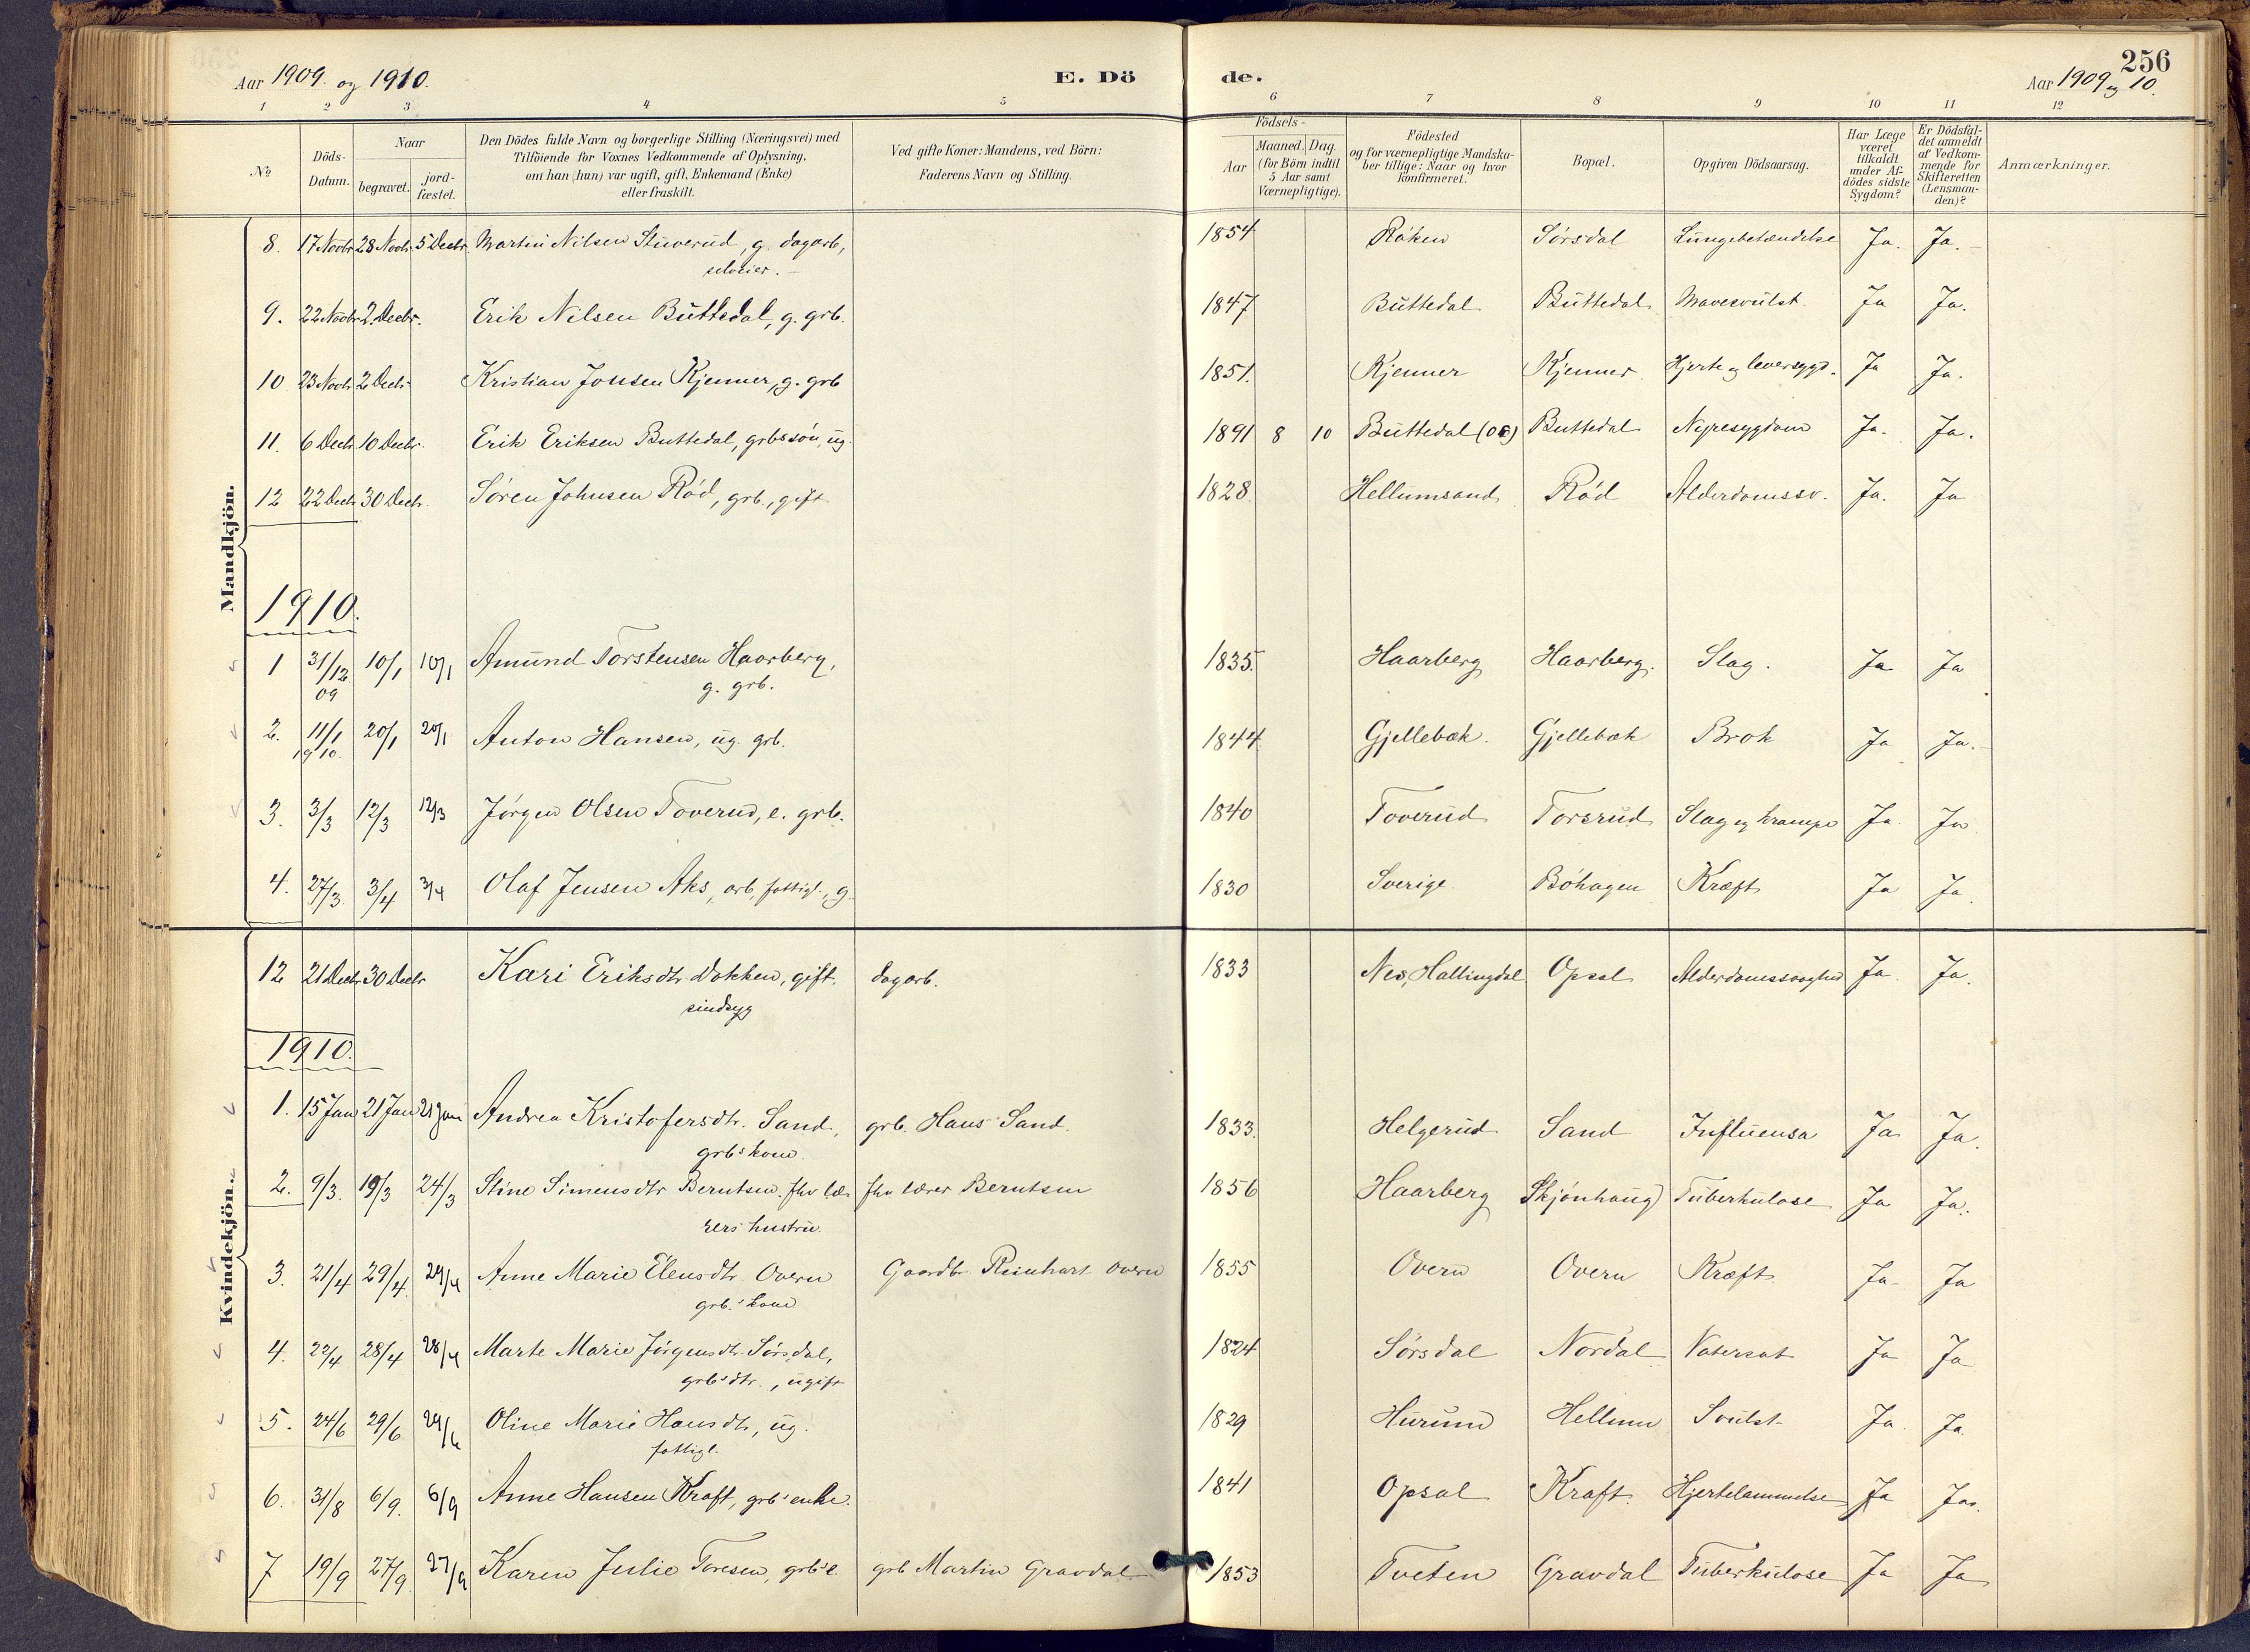 256
Aar 1909 og 1910.
E. Dö
de.
Aar 1909 og 10.
1 2 3 4 5 6 7 8 9 10 11 12
№
Döds-Datum.
Naar
begravet.
jord-fæstet.
Den Dödes fulde Navn og borgerlige Stilling (Næringsvei) med
Tilföiende for Voxnes Vedkommende af Oplysning,
om han (hun) var ugift, gift, Enkemand (Enke)
eller fraskilt.
Ved gifte Koner: Mandens, ved Börn:
Faderens Navn og Stilling.
Födsels-
Aar
Maaned. Dag.
(for Börn indtil
5 Aar samt
Værnepligtige).
Födested
og for værnepligtige Mandska-
ber tillige: Naar og hvor
konfirmeret.
Bopæl.
Opgiven Dödsaarsag.
Har Læge
været
tilkaldt
under Af-
dödes sidste
Sygdom?
Er Dödsfal-
det anmeldt
af Vedkom-
mende for
Skifteretten
(Lensman-
den)?
Anmærkninger.
Mandkjön.
8. 17 Novbr 28 Novbr. 5 Decbr. Martin Nilsen Stuverud, g. dagarb, 1854 Röken Sörsdal Lungebetændelse Ja. Ja.
selveier.
9. 22 Novbr 2. Decbr. Erik Nilsen Buttedal, g. grb. 1847 Buttedal Buttedal Mavesvulst Ja Ja.
10 23 Novbr. 2 Decbr. Kristian Jonsen Kjenner, g. grb 1851. Kjenner Kjenner Hjerte og leversygd. Ja Ja.
11. 6 Decbr. 10 Decbr. Erik Eriksen Buttedal, grbssön, ug. 1891 8 10 Buttedal Buttedal Nyresygdom Ja. Ja.
12 22 Decbr. 30 Decbr. Sören Johnsen Röd, grb., gift 1828. Hellumsand Röd Alderdomssv. Ja. Ja
1910.
1 31/12 09 10/1 10/1 Amund Torstensen Haarberg, 1835. Haarberg Haarberg. Slag. Ja Ja
g. grb.
2. 11/1 1910. 20/1 20/1 Anton Hansen, ug. grb. 1844 Gjellebæk. Gjellebæk Brok Ja Ja.
3. 3/3 12/3 12/3 Jörgen Olsen Toverud, e. grb. 1840 Toverud Torsrud Slag og krampe Ja Ja
4. 27/3 3/4 3/4 Olaf Jensen Aks, arb, fattigl., g. 1830 Sverige Böhagen Kræft Ja Ja.
Kvindekjön.
12 21 Decbr 30 Decbr Kari Eriksdtr. Dokken, gift. dagarb. 1833 Nes, Hallingdal Opsal Alderdomssvaghed Ja Ja.
sindsyg
1910.
1. 15 Jan 21 Jan 21 Jan Andrea Kristofersdtr. Sand, grb. Hans Sand. 1833. Helgerud Sand Influensa Ja Ja.
grb's kone.
2. 9/3. 19/3 24/3 Stine Simensdtr Berntsen. fhv læ- fhv lærer Berntsen 1856 Haarberg Skjönhaug Tuberkulose Ja Ja.
rers hustru.
3. 21/4 29/4. 29/4 Anne Marie Elensdtr. Overn Gaardbr. Reinhart Overn 1855 Overn Overn Kræft Ja Ja
grb.'kone
4. 22/4 28/4 28/4 Marte Marie Jörgensdtr. Sörsdal, 1824 Sörsdal Nordal Vatersot Ja Ja
grb'sdtr., ugift
5. 24/6 29/6 29/6 Oline Marie Hansdtr, ug. 1829 Hurum Hellum Svulst Ja Ja
fattigl.
6. 31/8 6/9. 6/9 Anne Hansen Kraft, grb' enke. 1841 Opsal Kraft. Hjertelammelse Ja Ja.
7 19/9 27/9 27/9 Karen Julie Toresen, grb'e grb Martin Gravdal 1853 Tveten Gravdal Tuberkulose Ja Ja